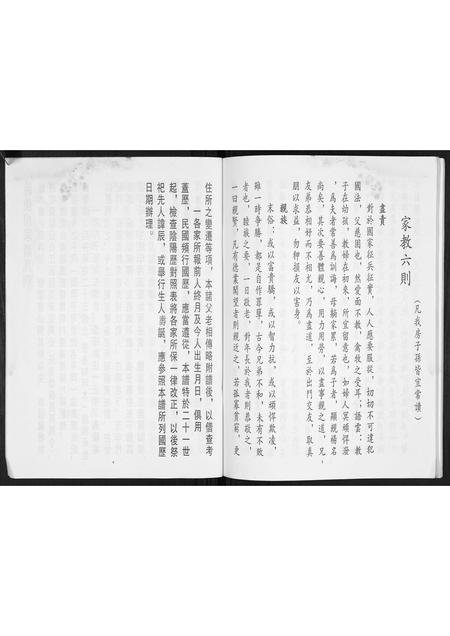 家教六則
（凡我房子孫皆宜常讀）
盡責
對於國家征兵征實，人人應要服從，切切不可違犯
國法，父慈固也，然愛而不教，禽牧之受耳；語雲：教
子在幼孩，教婦在初来，所宜留意也，如婦人冥頑悍潑
，為夫者常善為訓誨，母躺家累，若為子者，顯親揚名
尚矣，其次要善體親心，用力用勞，以盡事親之道，兄
友弟恭相好而不相尤，乃為盡道，至於出門交友，取真
朋以求益，勿狎損友以害身。
親族
末俗；或以富貴驕，或以智力抗，或以頑悍欺凌，
雖一時爭勝，都是自作罪孽，古今兄弟不和，未有不敗
者也，睦族之要，一曰敬老，對年長於我者則恭敬之，
一曰親賢，凡有德業聞望者則親近之，若孤寡貧窮，更
住所之變遷等項，本諸父老相傳略附譜後，以備查考
一各家所報前人終月及今人出生月日，俱用
舊歷，民國頻行國歷，應當遵從，本譜特於二十一世
起，檢查陰陽歷對照表將各家所保一律改正，以後祭
祀先人諱辰，或舉行生人壽誕，應參照本譜所列國歷
日期辦理。